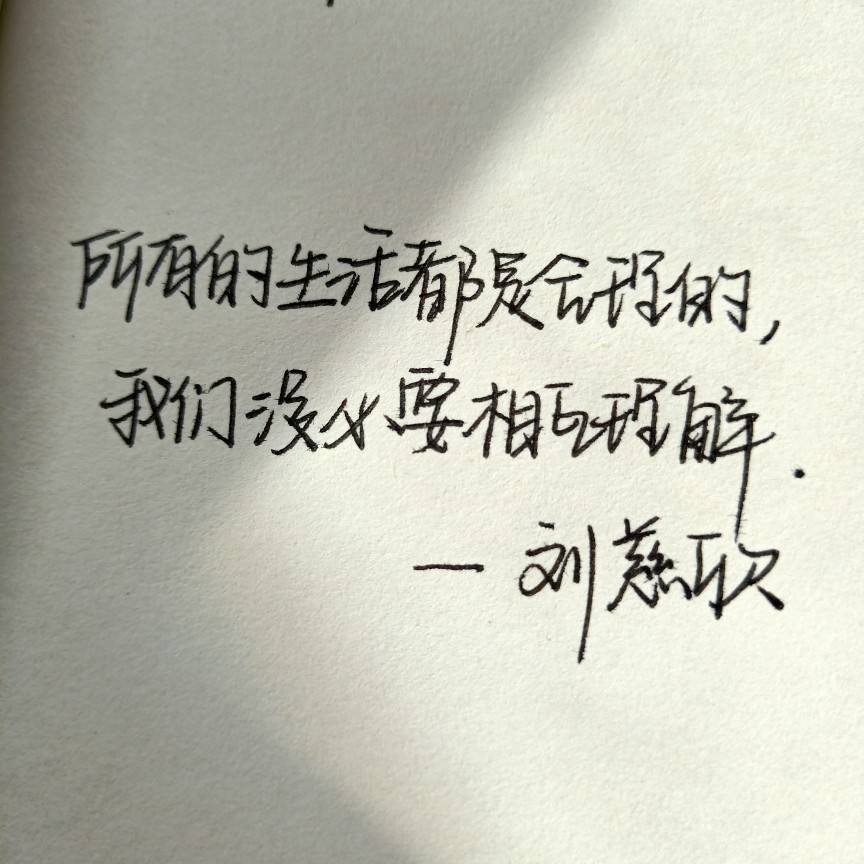 所有的生活都是合理的,
我们没必要相互理解.
— 刘慈欣